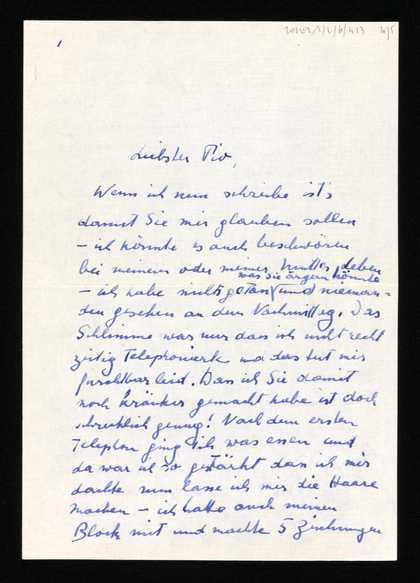 Liebster Pio,
Wenn ich nun schreibe ist's
damit Sie mir glauben sollen
– ich könnte es auch beschwören
bei meinem oder meiner Mutter Leben
was Sie ärgern könnte
– ich habe nichts getan (und nieman-
den gesehen an dem Nachmittag. Das
Schlimme war nur dass ich nicht recht
zeitig telephonierte na das tut mir
furchtbar leid. Dass ich Sie damit
noch kränker gemacht habe ist doch
schrecklich genug! Nach dem ersten
Telephon ging ich was essen und
da war ich so gestärkt dass ich mir
dachte nun lasse ich mir die Haare
machen – ich hatte auch meinen
Block mit und machte 5 Zeichnungen